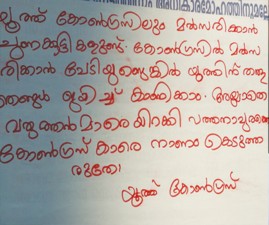 അധികാരമോഹത്തിനുമേ
യൂത്ത് കോൺഗ്രസിലും മൽസരിക്കാൻ
ചുണക്കുട്ടികളുണ്ട്. കോൺഗ്രസിൽ മൽസ
രിക്കാൻ പേടിയുണ്ടെങ്കിൽ യൂത്തിന് തന്നൂ
ഞങ്ങൾ ജയിച്ച് കാണിക്കാം. അല്ലാതെ
വരുത്തൻമാരെയിറക്കി പത്തനാപുരത്തെ
കോൺഗ്രസ് കാരെ നാണം കെടുത്ത
രുതേ!
യൂത്ത് കോൺഗ്രസ്